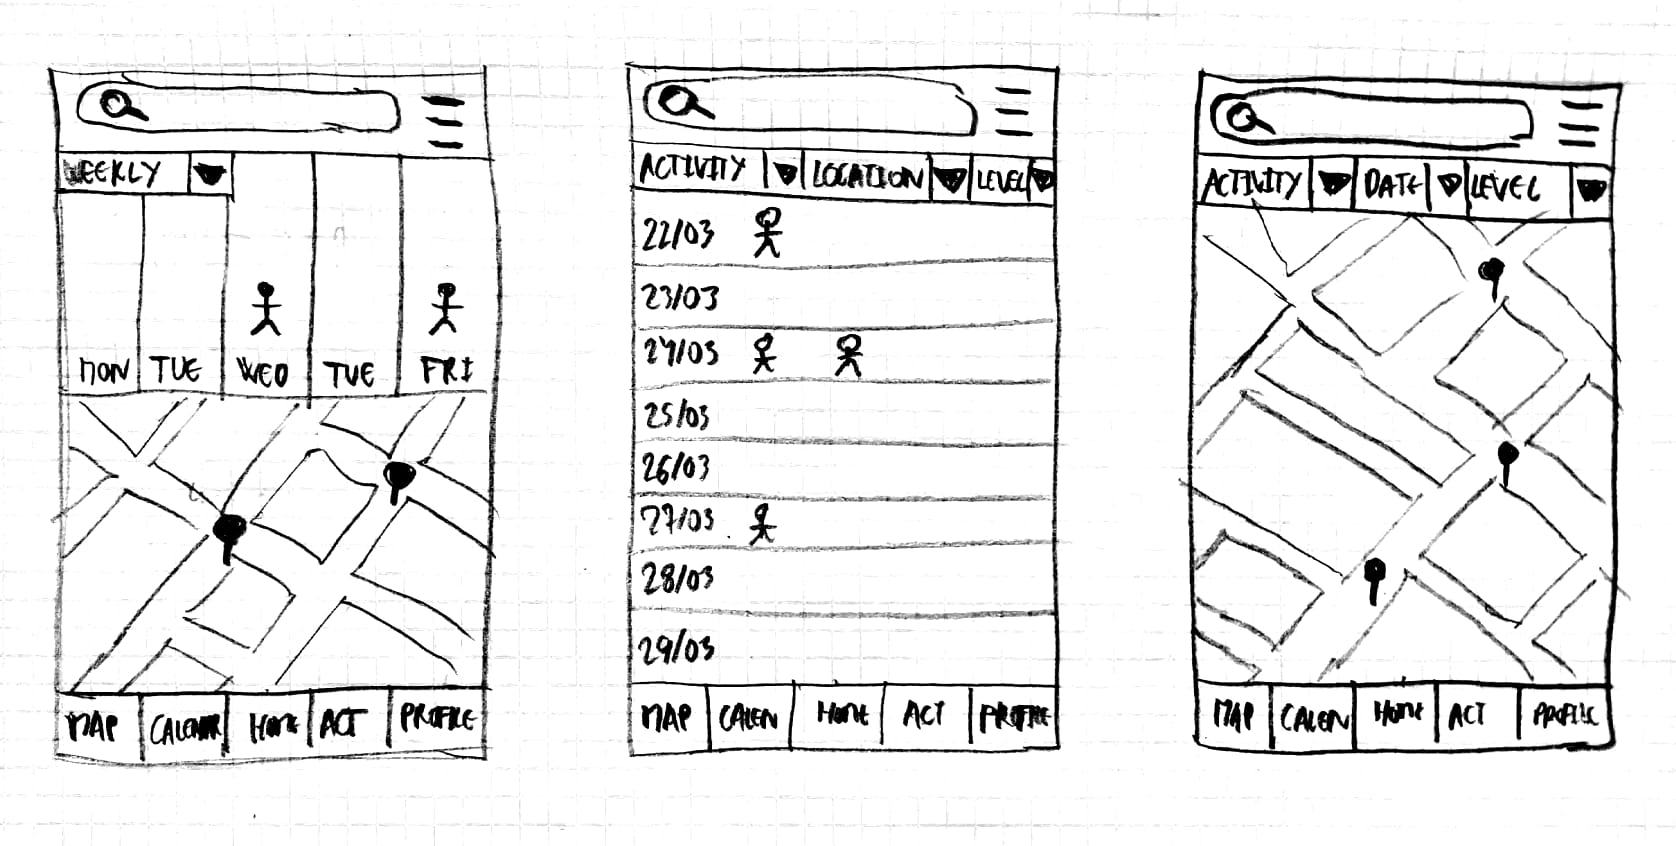 WEEKLY
MON TUE WED TUE FRI
MAP CALENDAR HOME ACT PROFILE
ACTIVITY LOCATION LEVEL
22/03
23/03
24/03
25/03
26/03
27/03
28/03
29/03
MAP CALEN HOME ACT PROFILE
ACTIVITY DATE LEVEL
MAP CALEN HOME ACT PROFILE